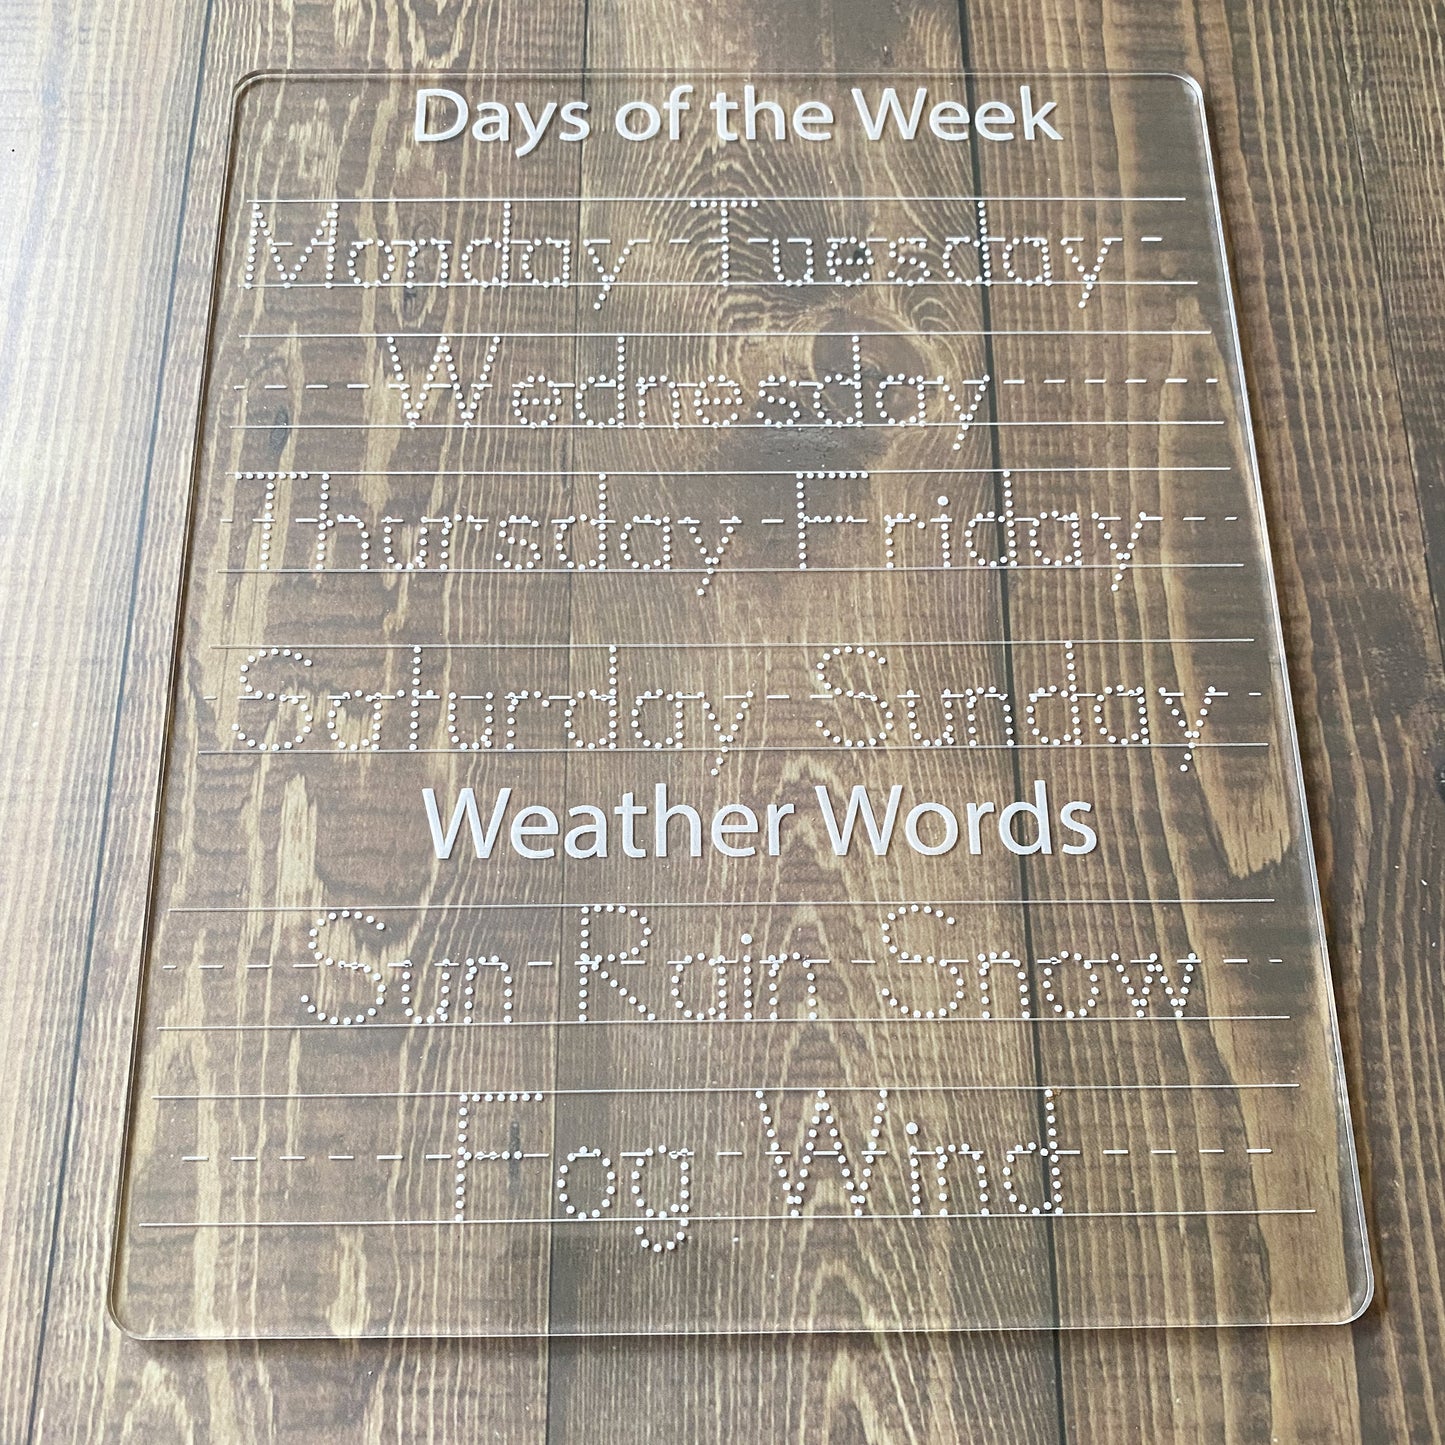 Days of the Week
Monday Tuesday
Wednesday
Thursday Friday
Saturday Sunday
Weather Words
Sun Rain Snow
Fog Wind